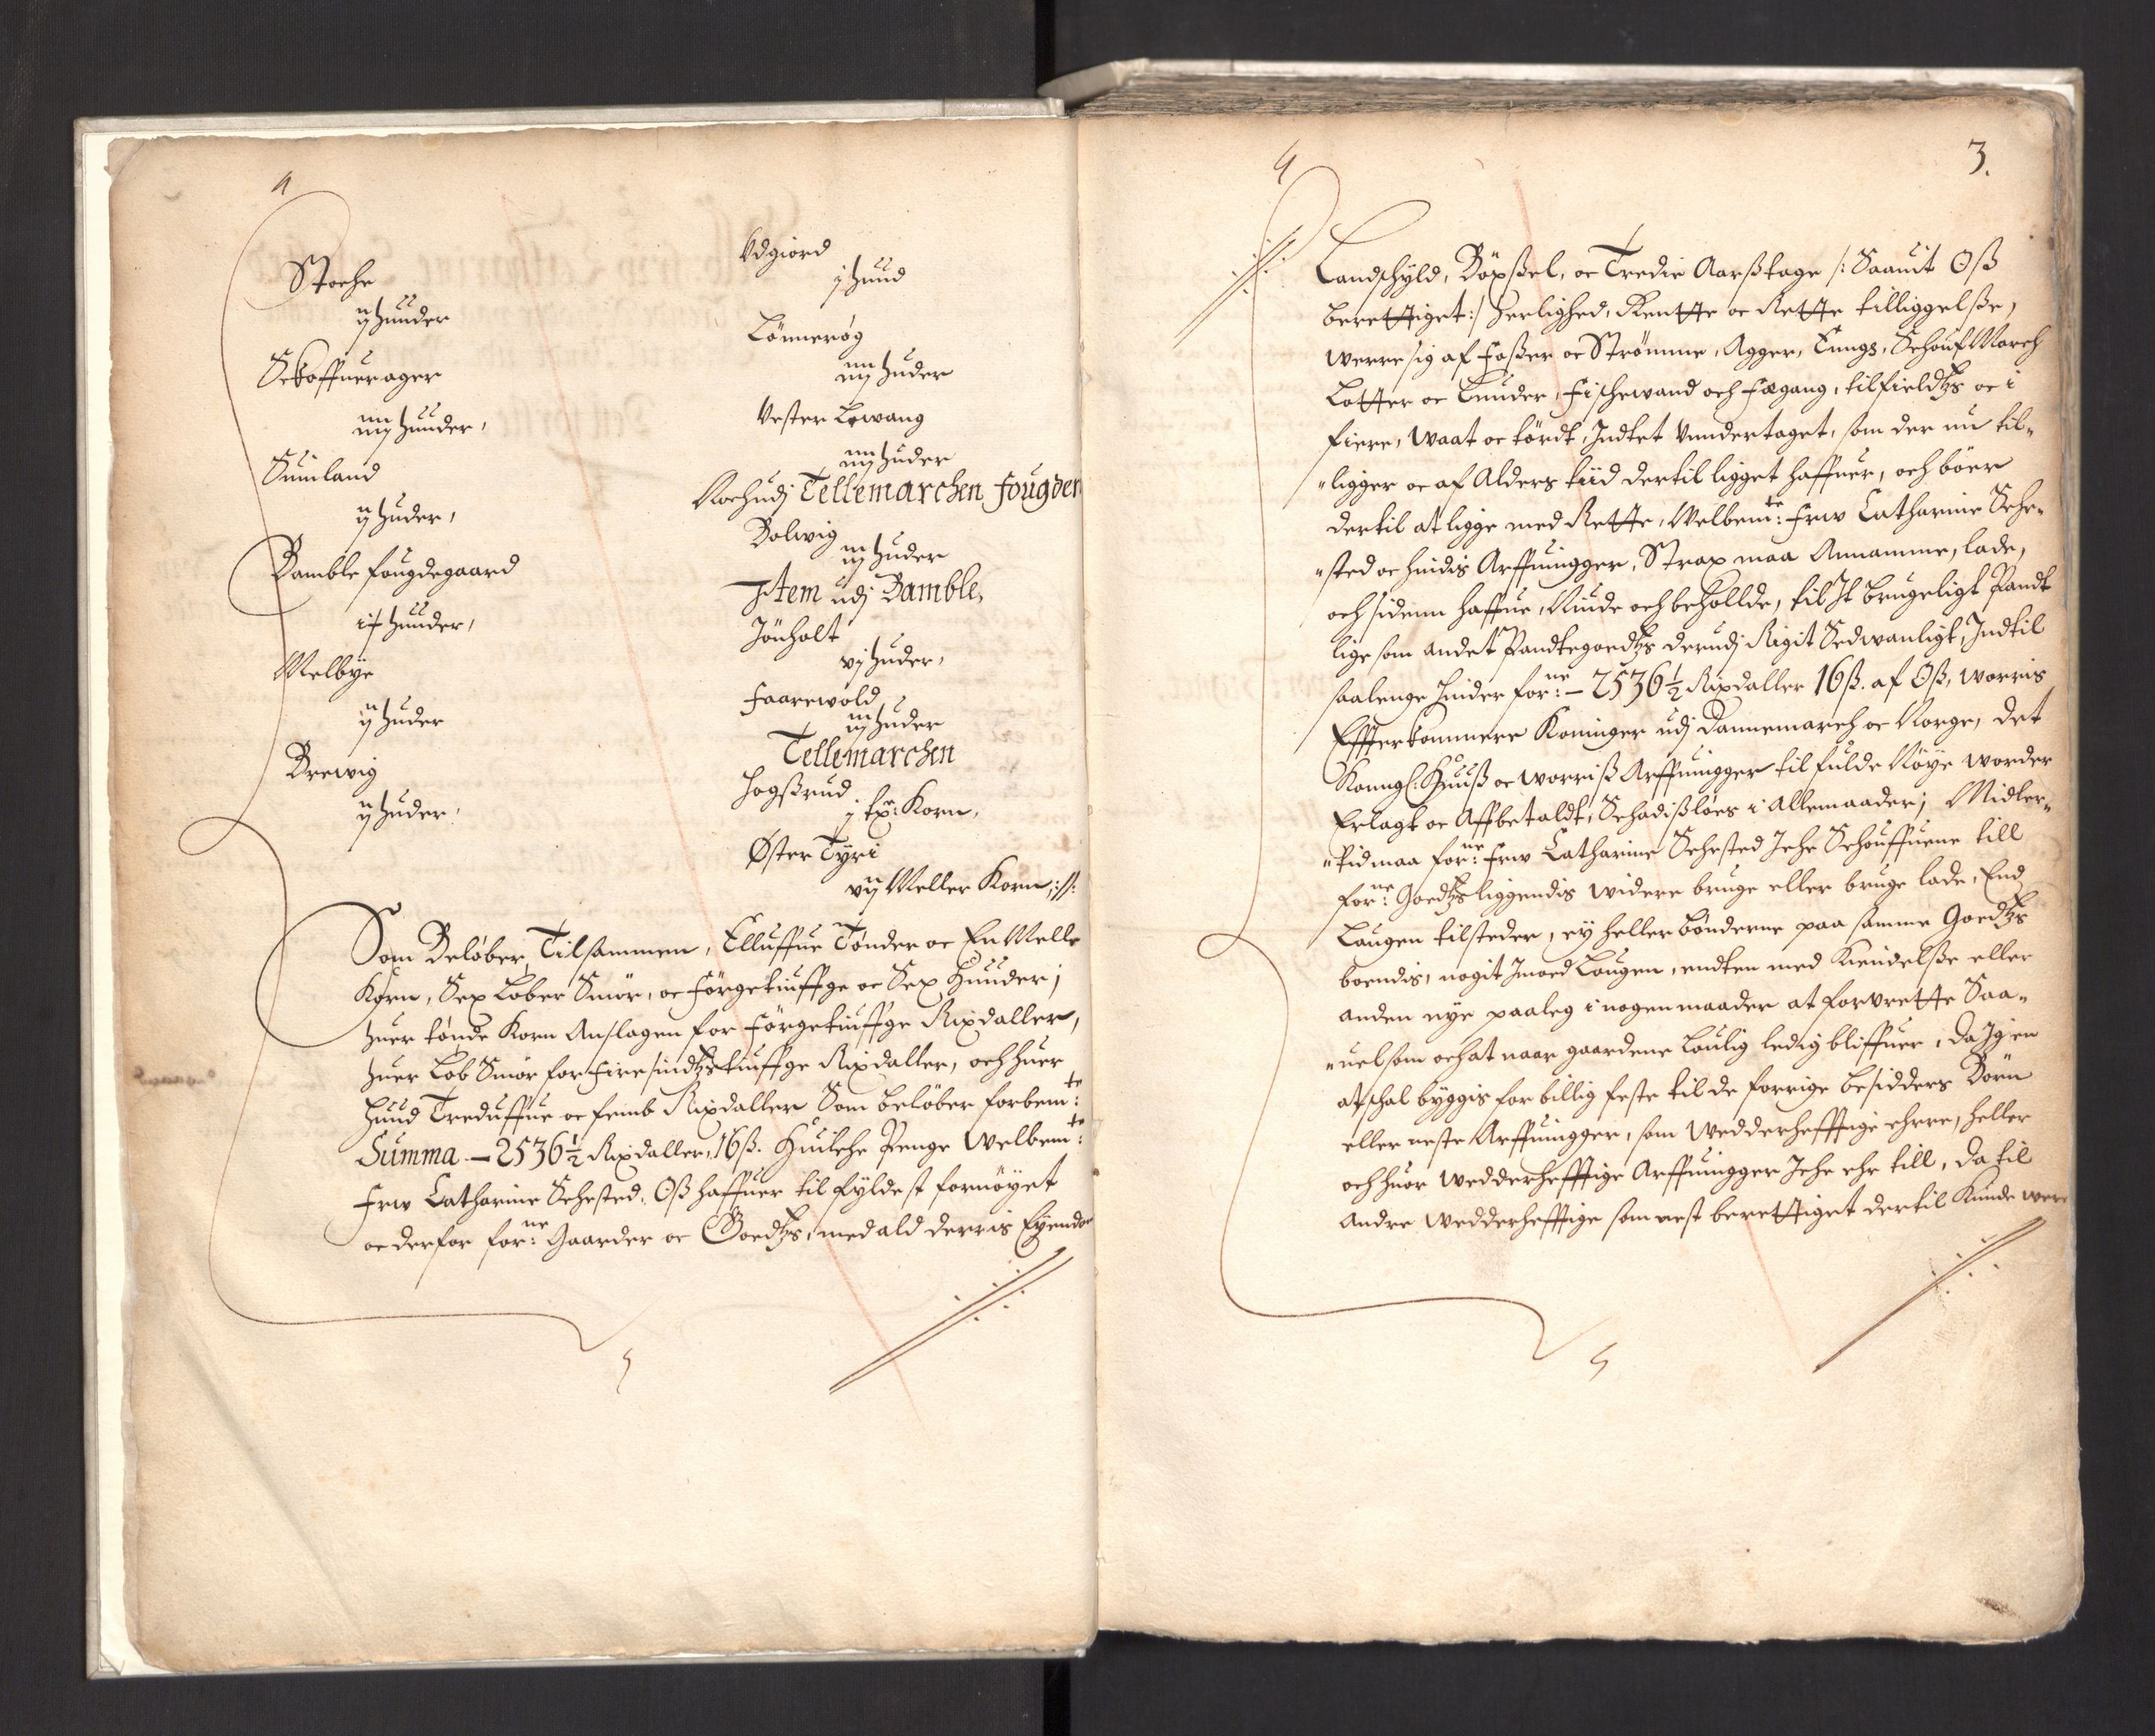 Stoche
ij Huuder
Sckoffuerager
iiij Huuder,
Suinland
ij Huder,
Bamble fougdegaard
i½ Huuder,
Melbye
ij Huder
Brewig
ij Huder,
Vdgiord
j Huud
Lönnerög
iiij Huder
Vester Lowang
iiij Huder
Noch udj Tellemarchen fougderi
Bolwig
iij Huder
Item udj Bamble,
Jönholt
vj Huder,
Faarewold
iij Huder
Tellemarchen
Hogßrud
j Korn,
Øster Tyri
vij Meller Korn ://:
Som Beløber Tilsammen, Elluffue Tønder oc En Melle
Korn, Sex Løber Smör, oc förgetiuffge oc Sex Huuder;
Huer tønde Korn Anslagen for Förgetiuffge Rixdaller,
Huer Løb Smör for Fire sindtzstiuffge Rixdaller, och Huer
Huud Treduffue oc femb Rixdaller Som beløber forbem:te
Summa – 2536½ Rixdaller, 16 ß. Huilche Penge Welbem:te
Frw Catharine Sehested, Oß haffuer til fyldest fornöyet
oc derfor for:ne Gaarder oc Goedtzs, med ald derris Eyendom
3.
Landschyld, Böxßel, oc Tredie Aarßtage /: Saauit Oß
berettiget :/ Herlighed, Rentte oc Rette tilliggelße,
werre sig af Foßer oc Strömme, Agger, Eungs, Schouf March
Lotter oc Lunder, Fischewand och Fægang, til fieldtzs oc i
fiere, waat oc tördt, Indtet Vundertaget, som der nu til„
„ligger oc af Alders tiid dertil ligget haffuer, och böer
dertil at ligge med Rette, Welbem:te Frw Catharine Sehe„
„sted oc hindis Arffuingger, Strax maa Annamme, lade,
och sidenn haffue, Niude och beholde, til It brugeligt Pandt
lige som andet Pandtegoedtzs derudj Rigit Sedwanligt, Indtil
saalenge Hinder for:ne – 2536½ Rixdaller 16 ß. af Oß, worris
Effterkommere Koninger udj Dannemarch oc Norge, det
Konngl: Huuß oc worriß Arffuingger til fulde Nöye worder
Erlagt oc Affbetaldt, Schadißlöes i Allemaader; Midler„
„Tid maa for:ne Frw Catharine Sehested Iche Schouffuene till
for:ne Goedtzs liggendis widere bruge eller bruge lade, End
Laugen tilsteder, ey heller bönderne paa samme Goedtzs
boendis, nogit Imoed Laugen, endten med Kiendelße eller
anden nye paaleg i nogen maader at forurette Saa„
„uel som och at naar gaardene Loulig ledig bliffuer, da Igien
at schal byggis for billig feste til de forrige besidders Börn
eller neste Arffuingger, som wedderhefftige ehrre, heller
och huor wedderhefftige Arffuingger Iche ehr till, da til
Andre wedderhefftige som nest berettiget dertil kunde were